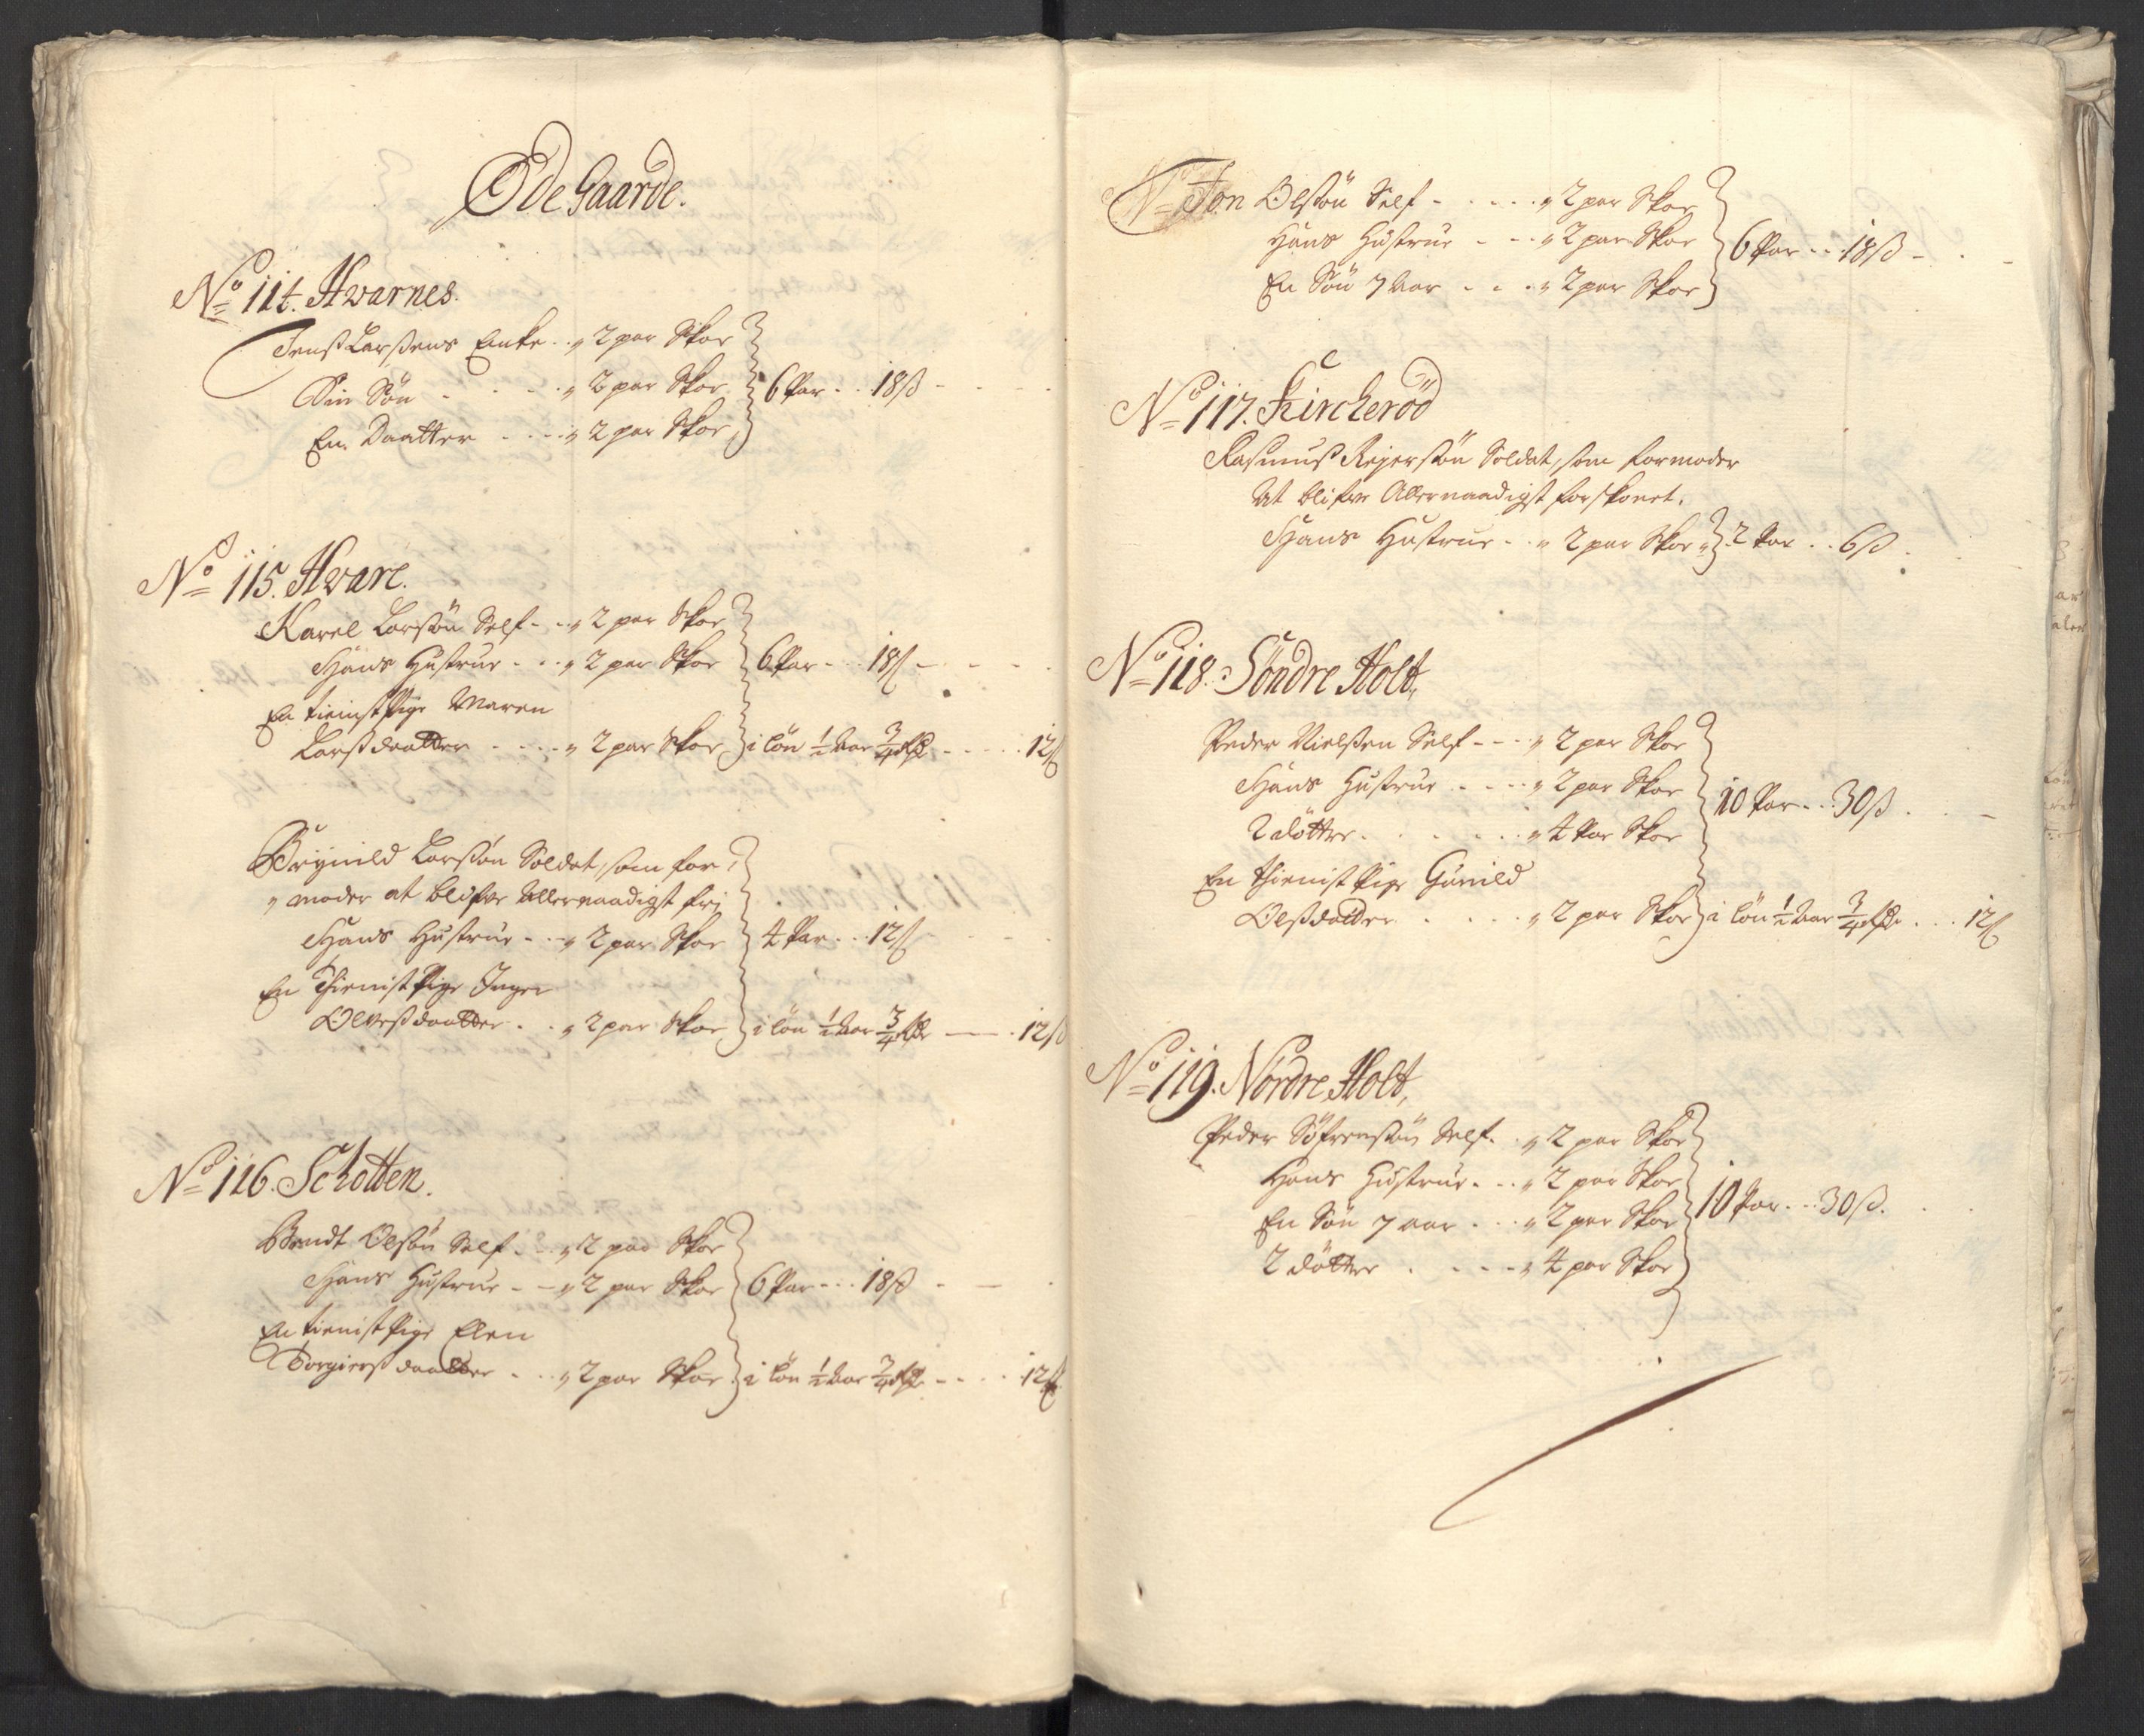 Öde Gaarde.
No 114. Hvarnes.
Jenß Larßens Enke . . „ 2 par Skoe
Sin Sön - - - „ 2 par Skoe } 6 Par - . 18 ß -
En Daatter - - - - „ 2 par Skoe
No 115. Hvare.
Karel Larsön Self - - „ 2 par Skoe
Hans Hustrue - . - „ 2 par Skoe } 6 Par - - 18 ß -
En tienist Pige Maren
Larßdaatter - - - - „ 2 par Skoe } i lön ½ Aar ¾ Rdr - - - - 12 ß
Brynild Larsön Soldat, som for,,
„ moder at blifve Allernaadigst fri
Hans Hustrue - . - „ 2 par Skoe } 4 Par - . . 12 ß
En Thienist Pige Inger
Olveßdaatter . . „ 2 par Skoe } i lön ½ Aar ¾ Rdr — . 12 ß
No 116. Schotten.
Bendt Olsön Self - - „ 2 par Skoe
Hans Hustrue - — „ 2 par Skoe } 6 Par - - . 18 ß -
En tienist Pige Elen
Torgierßdaatter - . - „ 2 par Skoe } i lön ½ Aar ¾ Rdr - - . . 12 ß
Jon Olsön Self - . - - - . „ 2 par Skoe
Hans Hustrue - - . „ 2 par Skoe } 6 Par - . . 18 ß -
En Sön 7 Aar - . - . „ 2 par Skoe
No 117. Kircheröd
Rasmuß Rejersön Soldat, som formoder
At blifve Allernaadigst forskonet.
Hans Hustrue - . „ 2 par Skoe } 2 Par . . 6 ß .
No 118. Söndre Holt,
Peder Nielßen Self - - - „ 2 par Skoe
Hans Hustrue . . - - „ 2 par Skoe } 10 Par - . . 30 ß .
2 döttre . . - - . . „ 4 Par Skoe
En Thienist Pige Gunild
Olßdatter . . . . . „ 2 par Skoe } i lön ½ Aar ¾ Rdr . . . . 12 ß
No 119. Nordre Holt,
Peder Söfrensön Self . . „ 2 par Skoe
Hans Hustrue . . . „ 2 par Skoe
En Sön 7 aar . . . „ 2 par Skoe } 10 Par . . . 30 ß .
2 döttre . . - - - „ 4 par Skoe